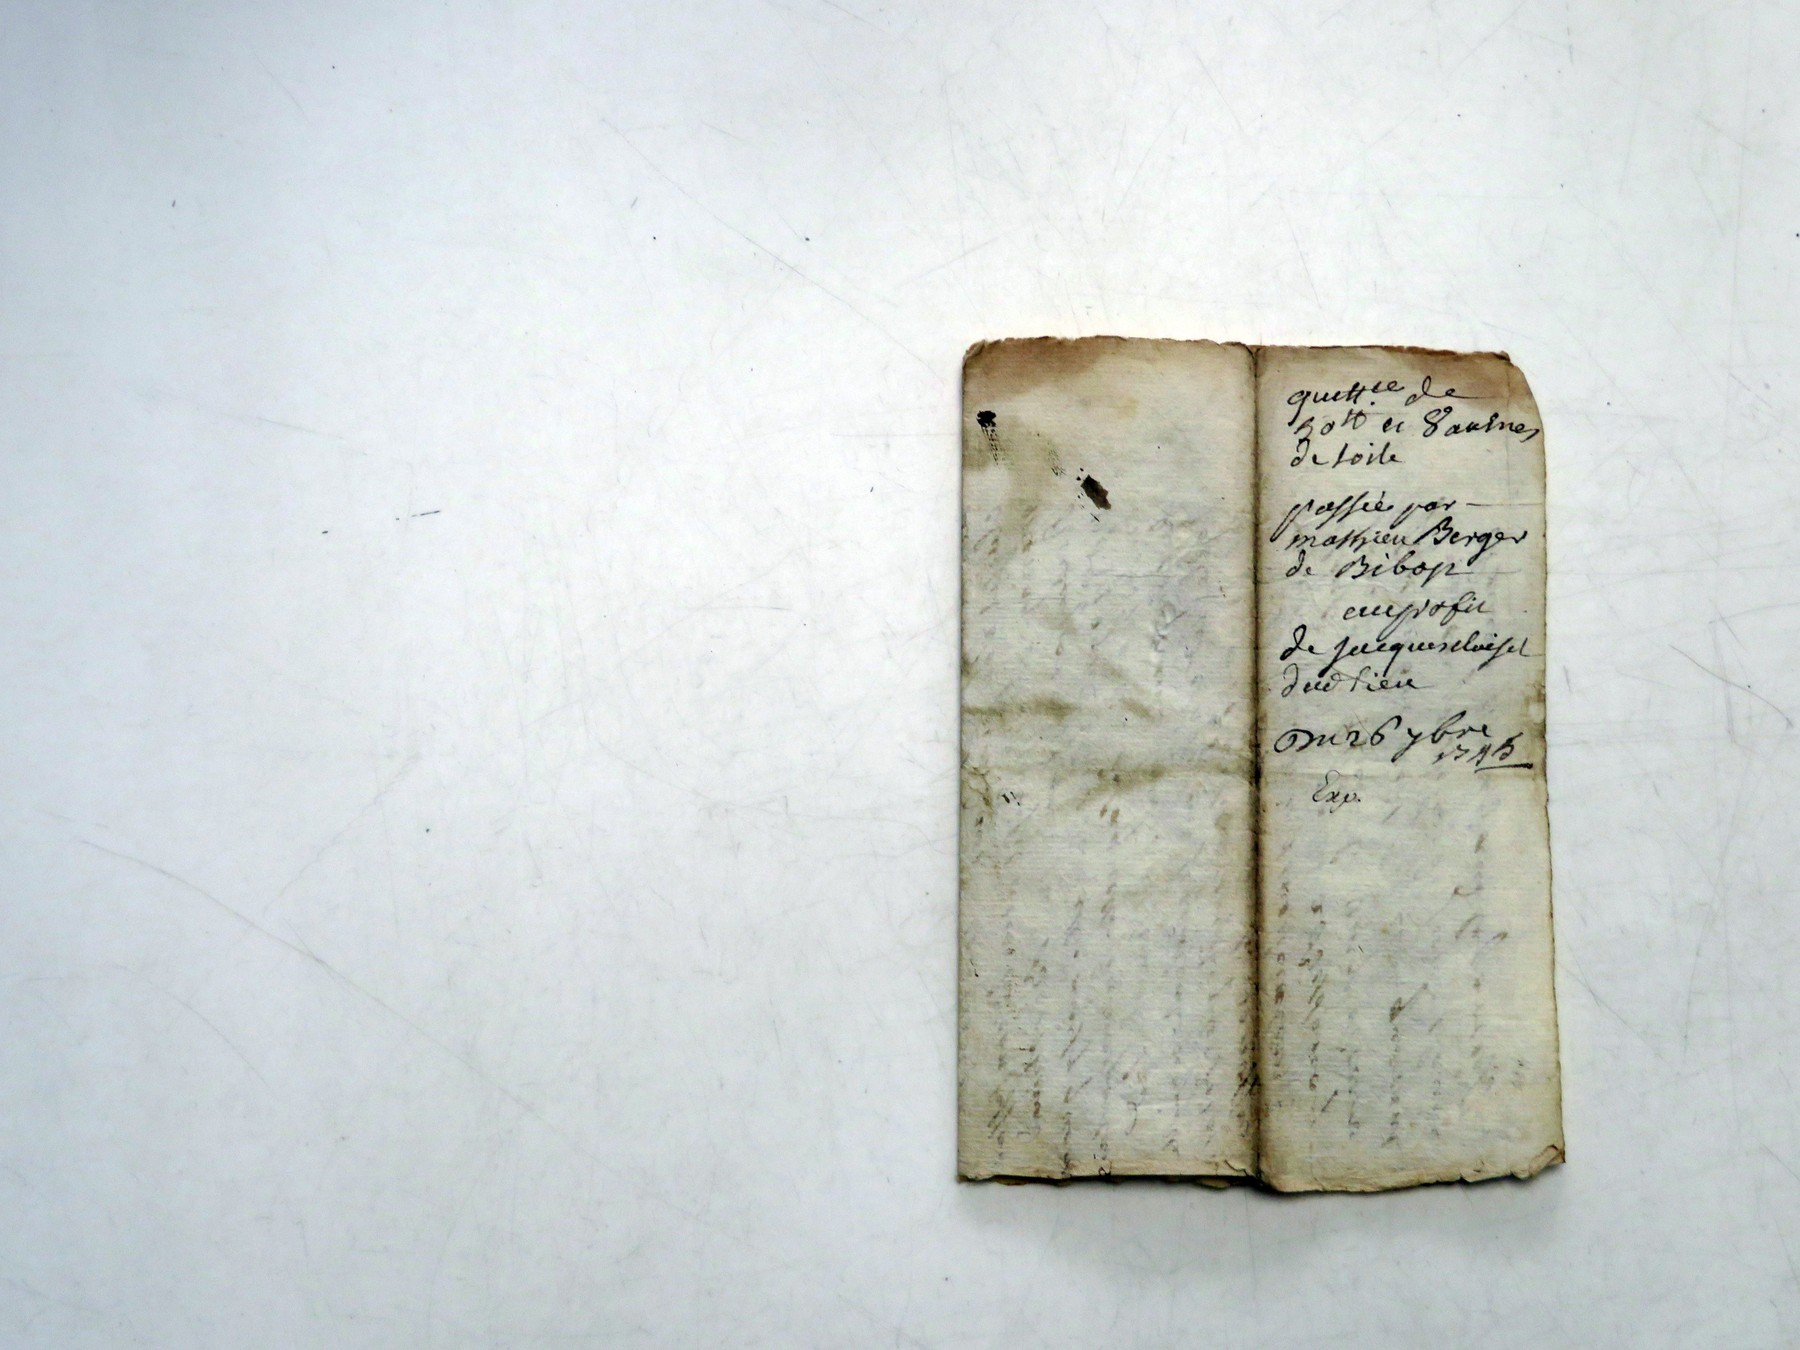 quitt.ce de
50tt et 8 aulnes
de toile
passée par
mathieu Berger
de Bibop
au profit
de jacques loisel
dud lieu
Du 26 7bre
1745
Exp.